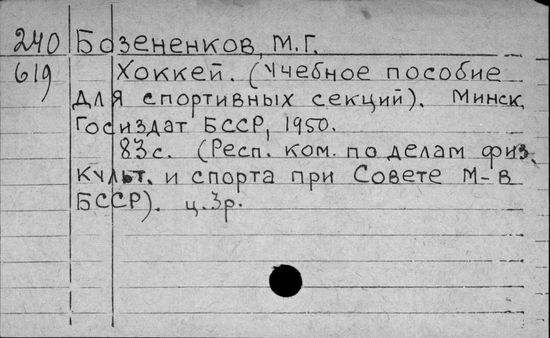 240 Бозененков, М.Г.
619 Хоккей. (Учебное пособие
для спортивных секций). Минск,
Госиздат БССР, 1950.
83с. (Респ. ком. по делам физ.
культ. и спорта при Совете М-в
БССР). ц.3р.